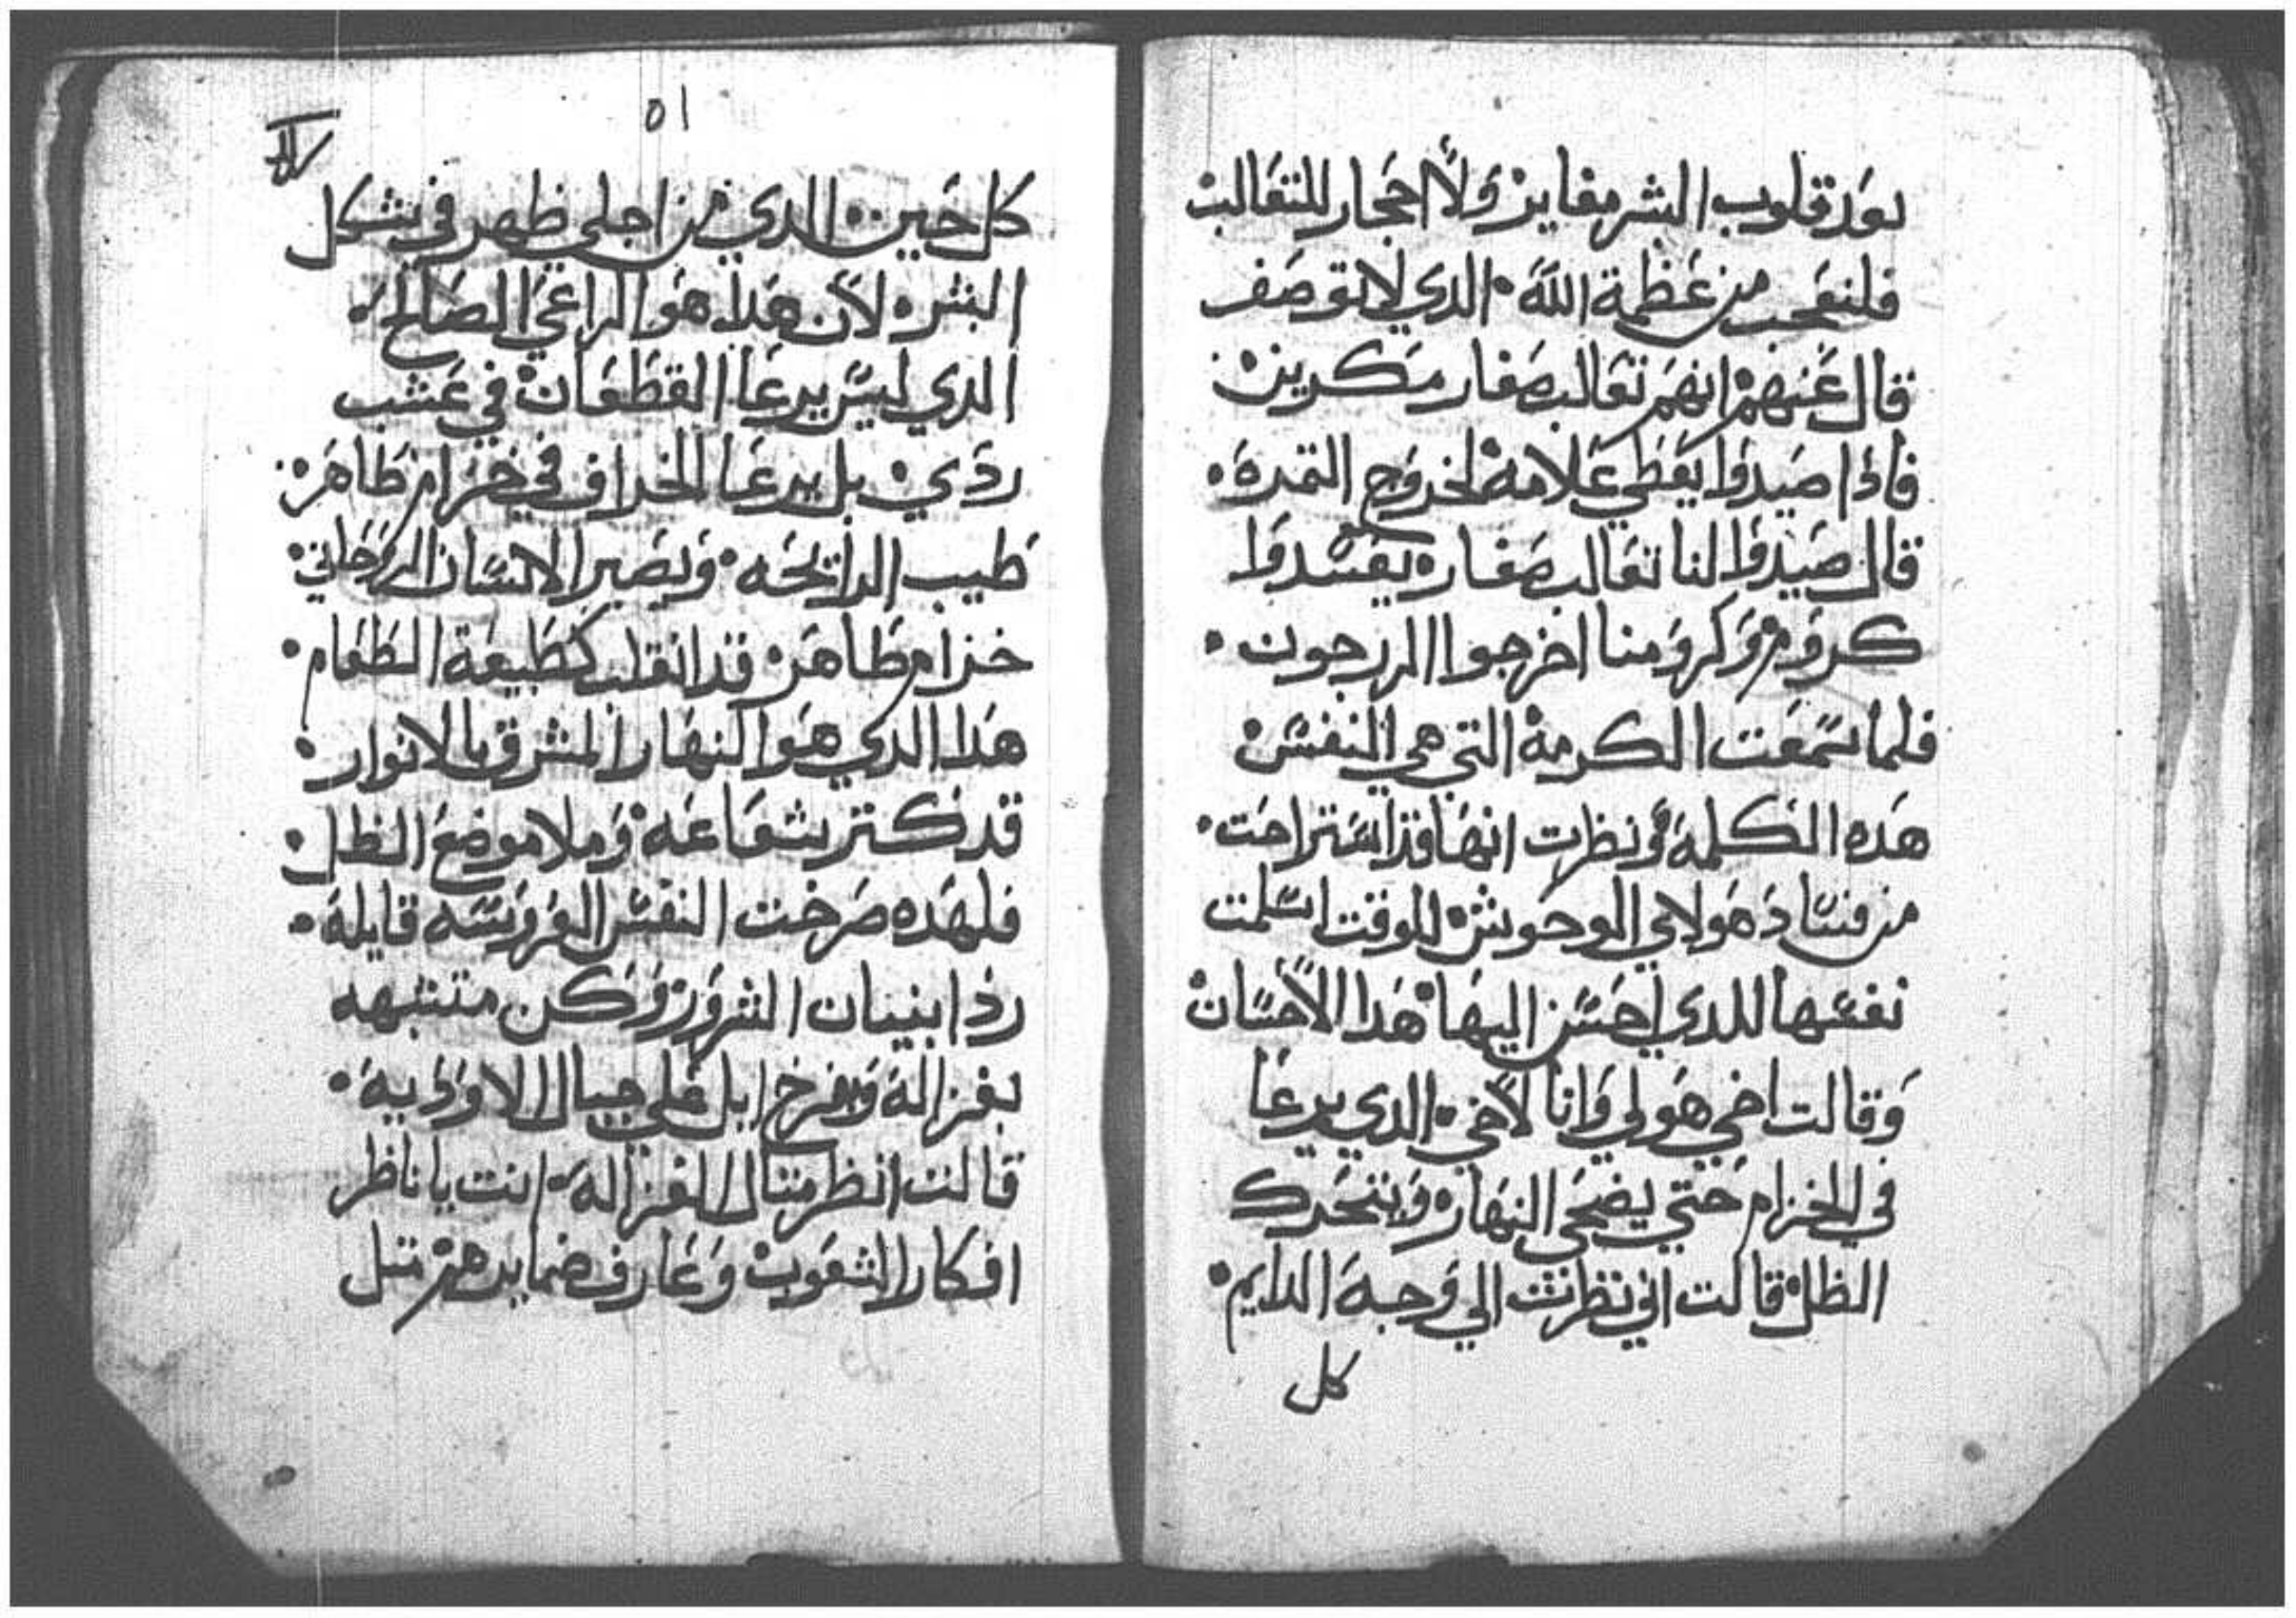 بعد قلوب البشر مغاير ولا احجار للتعالب
فلنعجب من عظمة الله الدي لا توصف
قال عنهم انهم تعالب صغار مكرين
فاذا صيدوا يعطي علامة لخروج التمرة
قال صيدوا لنا تعالب صغار يفسدوا
كروم وكرومنا اخرجوا الزرجون
فلما سمعت الكرمة التي هي النفس
هده الكلمة ونظرت انها قد استراحت
من فساد هولاي الوحوش للوقت اسلمت
نفسها للدي احسن اليها هدا الاحسان
وقالت اخي هو لي وانا لاخي الدي يرعا
في الخزام حتي يضحي النهار ويتحرك
الظل قالت اني نظرت الي وجه الدايم
كل
٥١
كل حين الدي من اجلي ظهر في شكل
البشر لان هدا هو الراعي الصالح
الدي ليس يرعا القطعان في عشب
ردي بل يرعا الخراف في خزام طاهر
طيب الرايحه ويصير الانسان الروحاني
خزام طاهر قد انقلب كطبيعة الطعام
هدا الدي هو النهار المشرق بالانوار
قد كتر بشعاعه وملا موضع الظل
فلهده صرخت النفس العروسه قايلة
رد ابنيات الشرور وكن متشبه
بغزالة وبفرخ ابل علي جبال الاودية
قالت انظر متال الغزالة انت يا ناظر
افكار الشعوب وعارف ضمايرهم متل